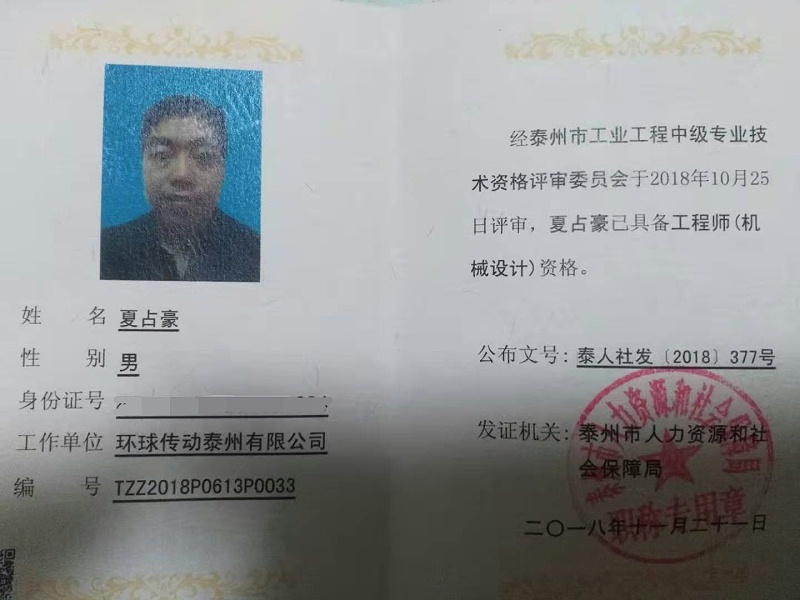 姓 名 夏占豪
性 别 男
身份证号
工作单位 环球传动泰州有限公司
编 号 TZZ2018P0613P0033
经泰州市工业工程中级专业技
术资格评审委员会于2018年10月25
日评审，夏占豪已具备工程师(机
械设计)资格。
公布文号：泰人社发〔2018〕377号
发证机关：泰州市人力资源和社
会保障局
二〇一八年十一月二十一日
职称专用章